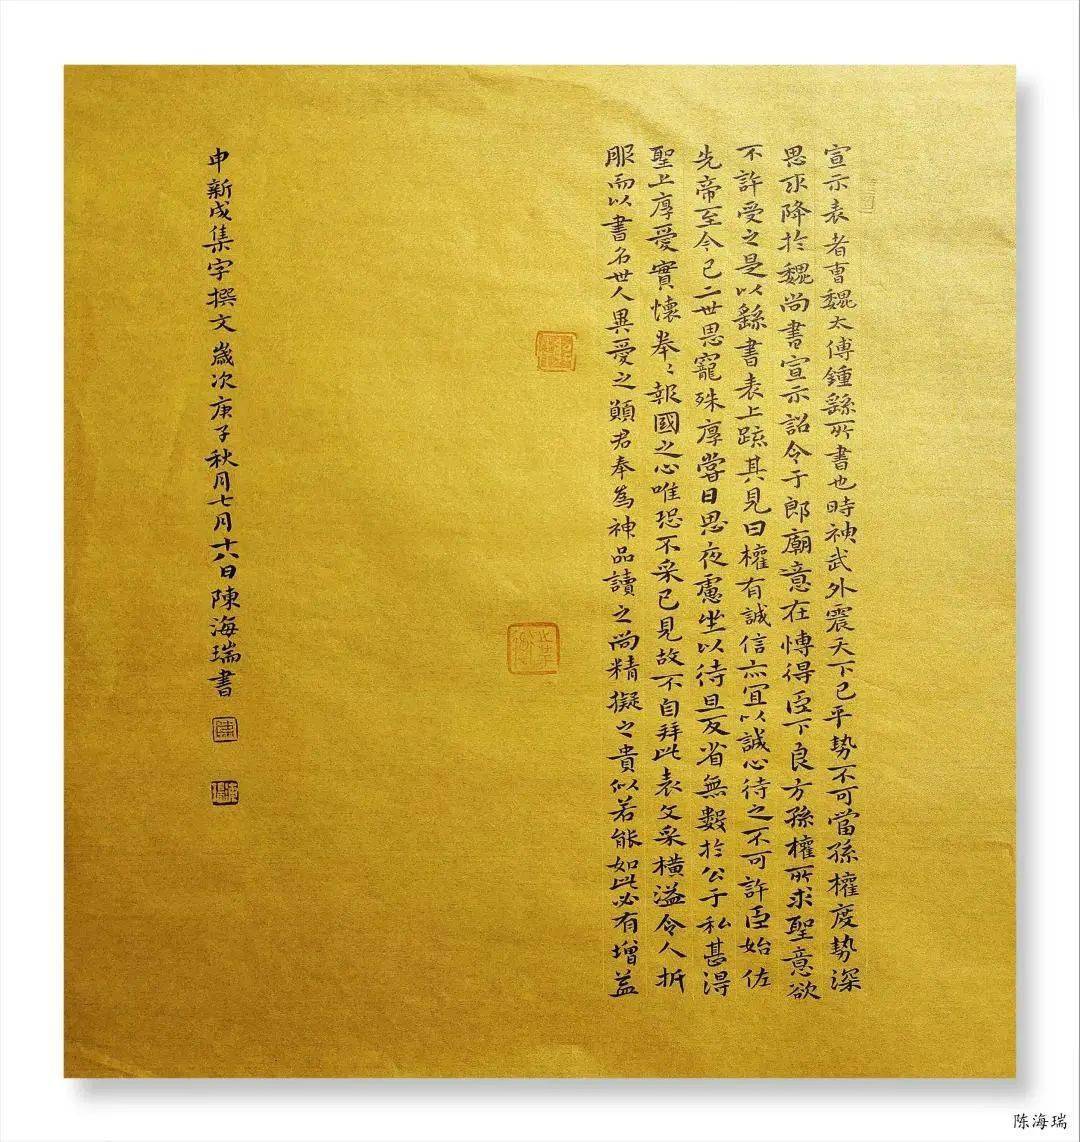 宣示表者曹魏太傅鍾繇所書也時神武外震天下已平勢不可當孫權度勢深
思求降於魏尚書宣示詔令于郎廟意在愽得臣下良方孫權所求聖意欲
不許受之是以繇書表上疏其見曰權有誠信亦宜以誠心待之不可許臣始佐
先帝至今已二世思寵殊厚嘗日思夜慮坐以待旦反省無數於公于私甚得
聖上厚受實懷拳〻報國之心唯恐不采已見故不自拜此表文采橫溢令人折
服而以書名世人異受之顗君奉為神品讀之尚精擬之貴似若能如此必有增益
申新成集字撰文歲次庚子秋月七月十六日陳海瑞書
陈海瑞